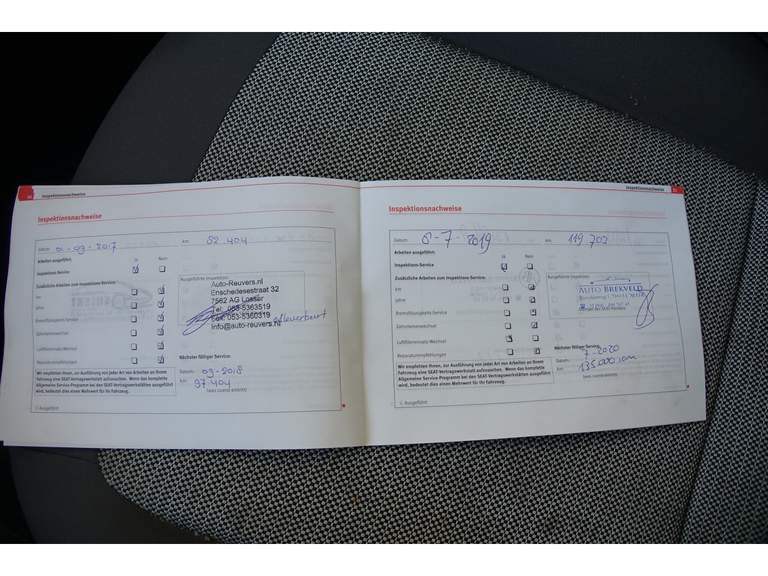 Inspektionsnachweise
Inspektionsnachweise
Datum: 01-03-2017 km: 82.404
Arbeiten ausgeführt: Ja Nein
Inspektions-Service
Zusätzliche Arbeiten zum Inspektions-Service:
km
Jahre
Bremsflüssigkeits-Service
Zahnriemenwechsel
Luftfiltereinsatz-Wechsel
Reparaturempfehlungen
Ausgeführte Inspektion:
Auto-Reuvers.nl
Enschedesestraat 32
7562 AG Losser
Tel. 053-5363519
Fax. 053-5360319
Info@auto-reuvers.nl
Nächster fälliger Service:
Datum: 03-2018
km: 97.404
Wir empfehlen Ihnen, zur Ausführung von jeder Art von Arbeiten an Ihrem
Fahrzeug eine SEAT-Vertragswerkstatt aufzusuchen. Wenn das komplette
Allgemeine Service-Programm bei den SEAT-Vertragswerkstätten ausgeführt
wird, bedeutet dies einen Mehrwert für Ihr Fahrzeug.
Ausgeführt
Inspektionsnachweise
Inspektionsnachweise
Datum: 8-7-2019 km: 119 702
Arbeiten ausgeführt: Ja Nein
Inspektions-Service
Zusätzliche Arbeiten zum Inspektions-Service:
km
Jahre
Bremsflüssigkeits-Service
Zahnriemenwechsel
Luftfiltereinsatz-Wechsel
Reparaturempfehlungen
Ausgeführte Inspektion:
AUTO BREKVELD
Nächster fälliger Service:
Datum: 7-2020
km: 135.000 km
Wir empfehlen Ihnen, zur Ausführung von jeder Art von Arbeiten an Ihrem
Fahrzeug eine SEAT-Vertragswerkstatt aufzusuchen. Wenn das komplette
Allgemeine Service-Programm bei den SEAT-Vertragswerkstätten ausgeführt
wird, bedeutet dies einen Mehrwert für Ihr Fahrzeug.
Ausgeführt